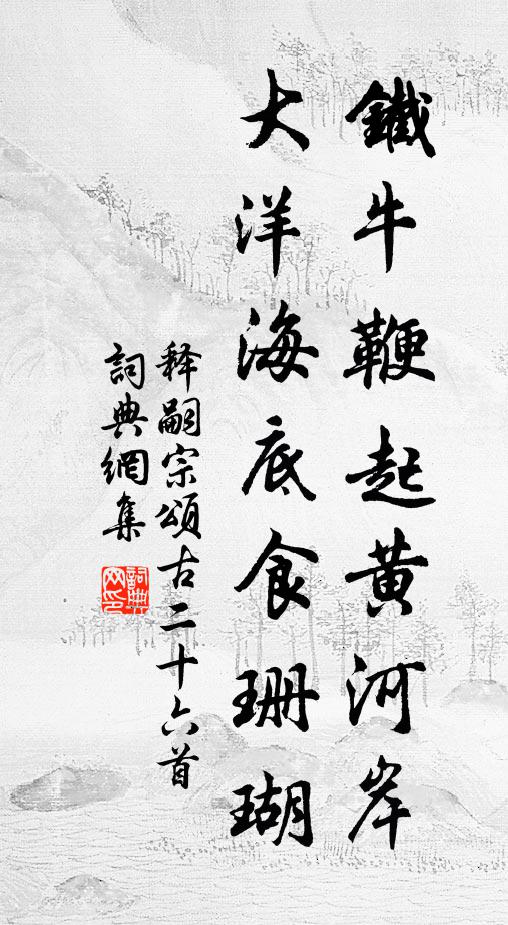 鐵牛鞭起黃河岸
大洋海底食珊瑚
释嗣宗頌古二十六首
詞典網集
詞典網印